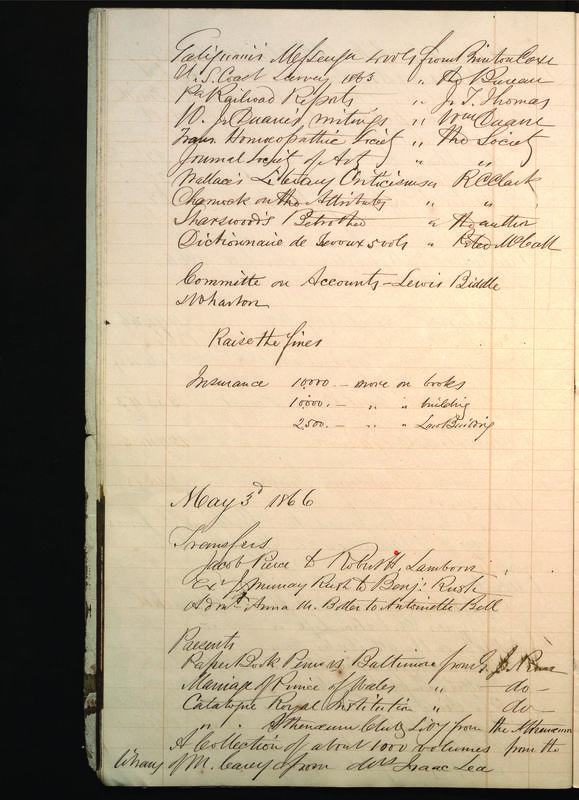 Galignani's Messenger 4 vols from Brinton Coxe
U.S. Coast Survey 1863 " the Bureau
Pa Railroad Reports " J. T. Thomas
W. J. Duane's writings " Wm Duane
Trans. Homoeopathic Society " the Society
Journal Society of Art " "
Wallace's Literary Criticisms " R C Clark
Charnock on the Attributes " "
Sharswood's Betrothed " the author
Dictionnaire de Trevoux 5 vols " Peter McCall
Committe on Accounts - Lewis Biddle
& Wharton
Raise the fines
Insurance 10,000. - more on books
10,000. - " " building
2,500. - " " Law Building
May 3d 1866
Transfers
Jacob Peirce to Robert H. Lamborn
Exr J Murray Rush to Benj. Rush
Admr. Anna M. Boller to Antoinette Bell
Presents
Paper Book Penn vs Baltimore from G.
Marriage of Prince of Wales " do -
Catalogue Royal Institution " do -
" " Athenaeum Club Liby from the Athenaeum
A Collection of about 1000 volumes from the
library of M. Carey & from Mrs Isaac Lea